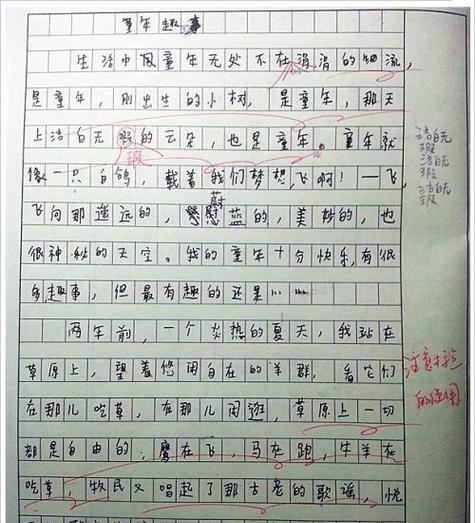 童年趣事
生活中因童年无处不在涓涓的细流，
是童年，刚出生的小树，是童年，那天
上洁白无暇的云朵，也是童年。童年就
瑕
洁白无
瑕
洁白无
瑕
洁白无
瑕
像一只白鸽，载着我们梦想，飞啊！一飞，
飞向那遥远的，蔚蓝的，美妙的，也
很神秘的天空。我的童年十分快乐，有很
多趣事，但最有趣的还是……
两年前，一个炎热的夏天，我站在
草原上，望着悠闲自在的羊群，看它们
注意标点
的使用
在那儿吃草，在那儿闲逛，草原上一切
都是自由的：鹰在飞，马在跑，牛羊在
吃草，牧民又唱起了那古老的歌谣，悦